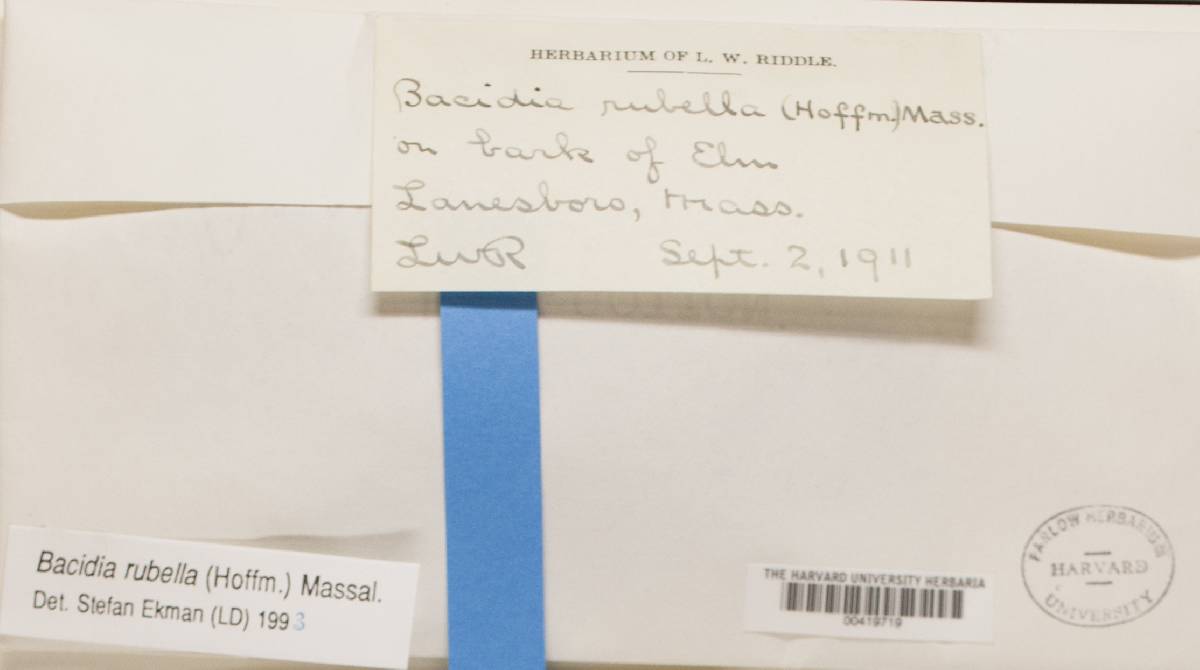 HERBARIUM OF L. W. RIDDLE.
Bacidia rubella (Hoffm.) Mass.
on bark of Elm
Lanesboro, Mass.
LWR Sept. 2, 1911
Bacidia rubella (Hoffm.) Massal.
Det. Stefan Ekman (LD) 1993
THE HARVARD UNIVERSITY HERBARIA
00419719
FARLOW HERBARIUM
HARVARD
UNIVERSITY